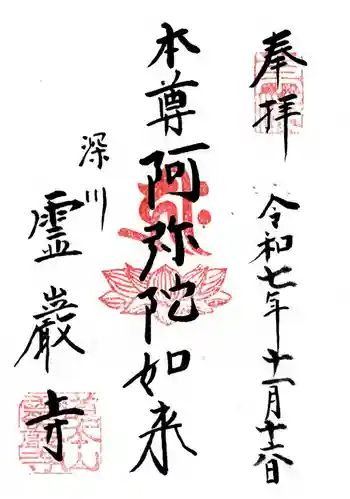 奉拝
令和七年十一月十六日
本尊阿弥陀如来
深川
霊巌寺